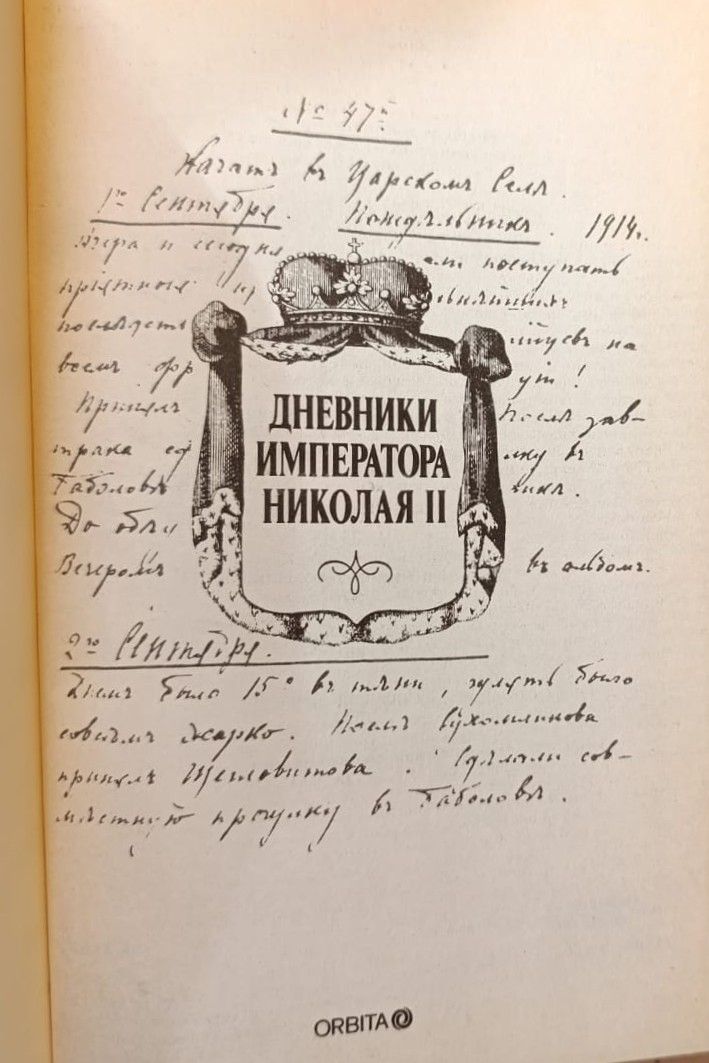 № 47й
Начатъ въ Царскомъ Селѣ.
1го Сентября. Понедѣльникъ. 1914г.
Вчера и сегодня али поступать
пріятныя
послѣдств на
всемъ фр ут!
Принялъ Послѣ зав-
трака лку въ
Баболовѣ
До обѣ
Вечеромъ въ альбомъ.
ДНЕВНИКИ
ИМПЕРАТОРА
НИКОЛАЯ II
2го Сентября.
Днемъ было 15° въ тѣни, гулять было
совсѣмъ жарко. Послѣ Сухомлинова
принялъ Щегловитова. Сдѣлали сов-
мѣстную прогулку въ Баболовѣ.
ORBITA